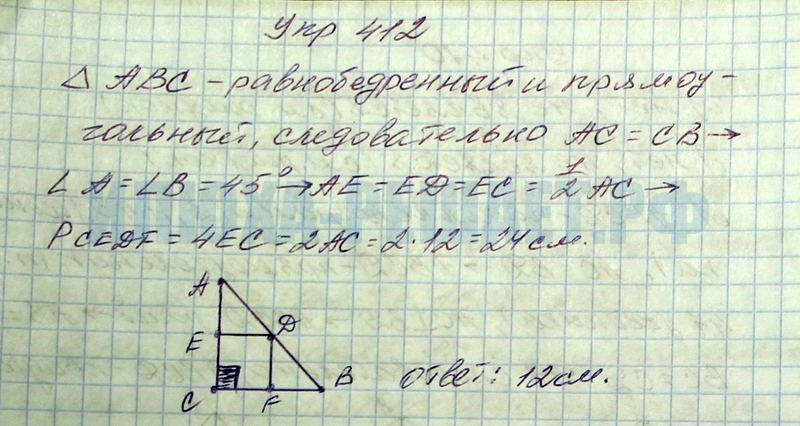 Упр 412
△ ABC – равнобедренный и прямоу-
гольный, следовательно AC = CB →
∠ A = ∠B = 45° → AE = ED = EC = 1/2 AC →
PCEDF = 4EC = 2AC = 2·12 = 24 см.
A
E
D
C
F
B
ответ: 12см.